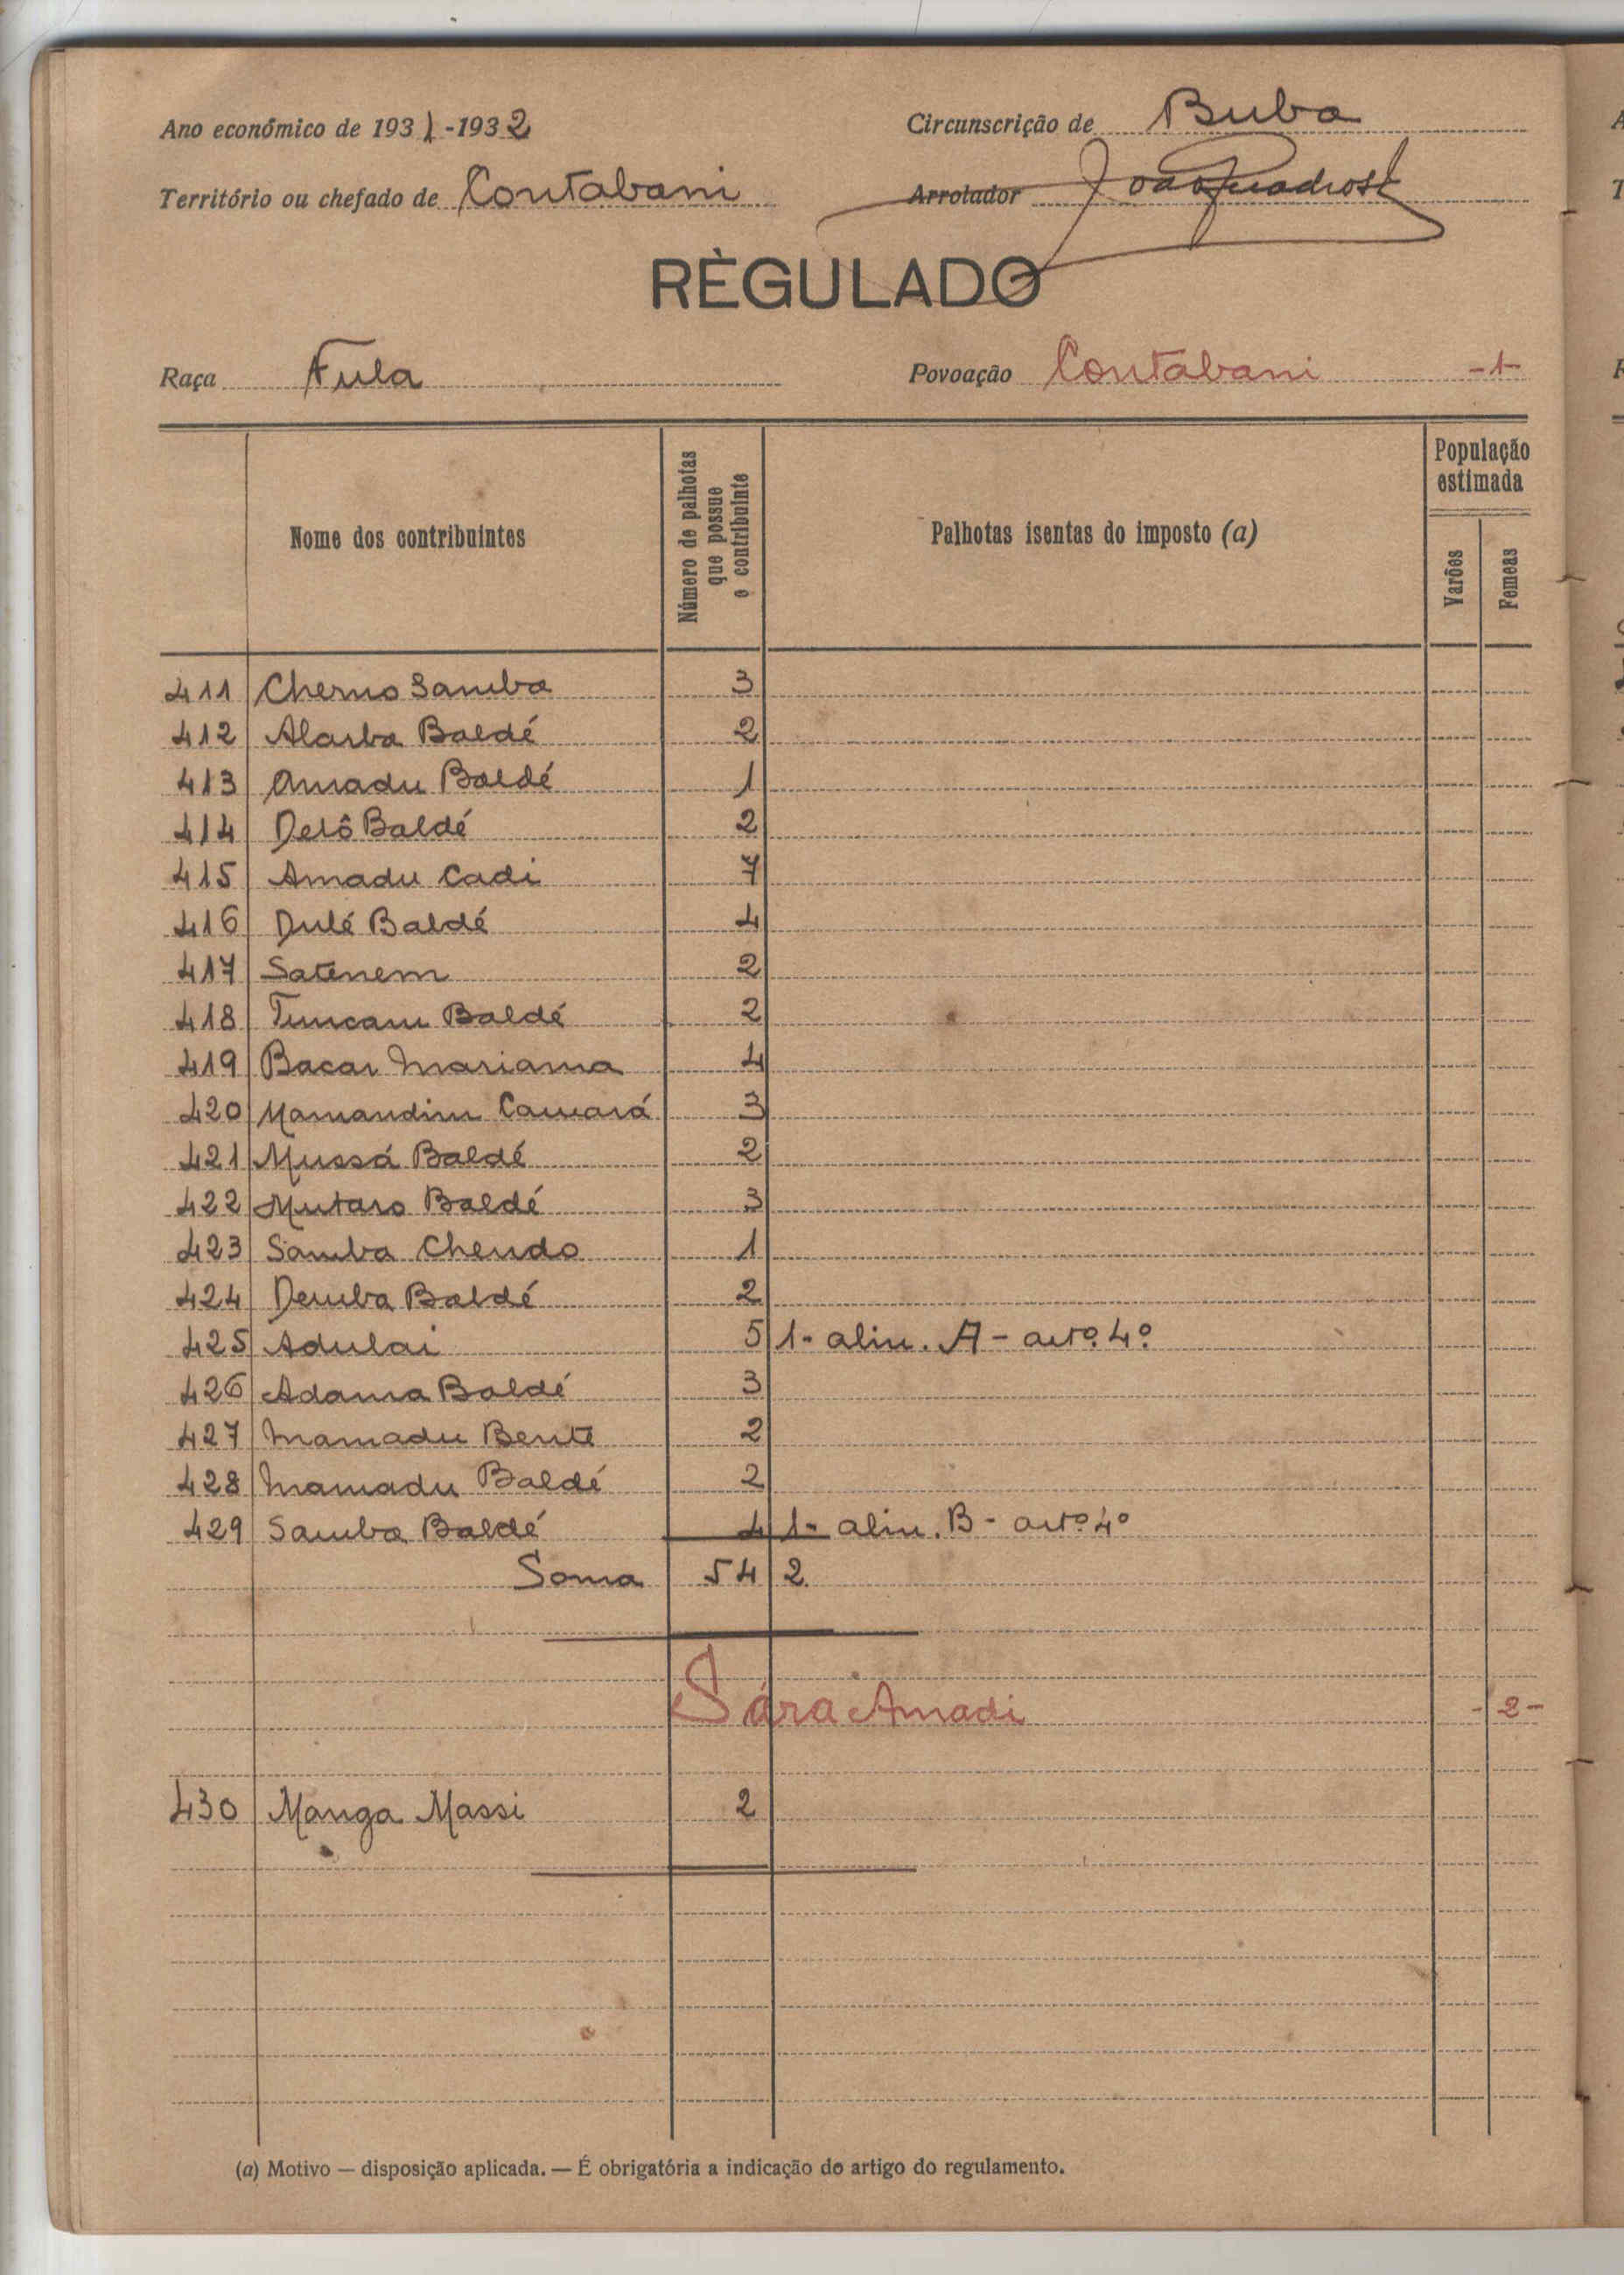 Ano económico de 1931-1932 Circunscrição de Buba
Território ou chefado de Contabani Arrolador
RÈGULADO
Raça Fula Povoação Contabani -1-
Nome dos contribuintes
Número de palhotas que possue o contribuinte
Palhotas isentas do imposto (a)
População estimada
Varões
Femeas
411 Cherno Samba 3
412 Alarba Baldé 2
413 Amadu Baldé 1
414 Delô Baldé 2
415 Amadu Cadi 7
416 Dulé Baldé 4
417 Satenem 2
418 Tuncam Baldé 2
419 Bacar Mariama 4
420 Mamandim Camará 3
421 Mussá Baldé 2
422 Mutaro Baldé 3
423 Samba Chendo 1
424 Demba Baldé 2
425 Adulai 5 1- alin. A - artº. 4º
426 Adama Baldé 3
427 Mamadu Bente 2
428 Mamadu Baldé 2
429 Samba Baldé 4 1- alin. B - artº 4º
Soma 54 2
Sára Amadi -2-
430 Manga Massi 2
(a) Motivo — disposição aplicada. — É obrigatória a indicação do artigo do regulamento.